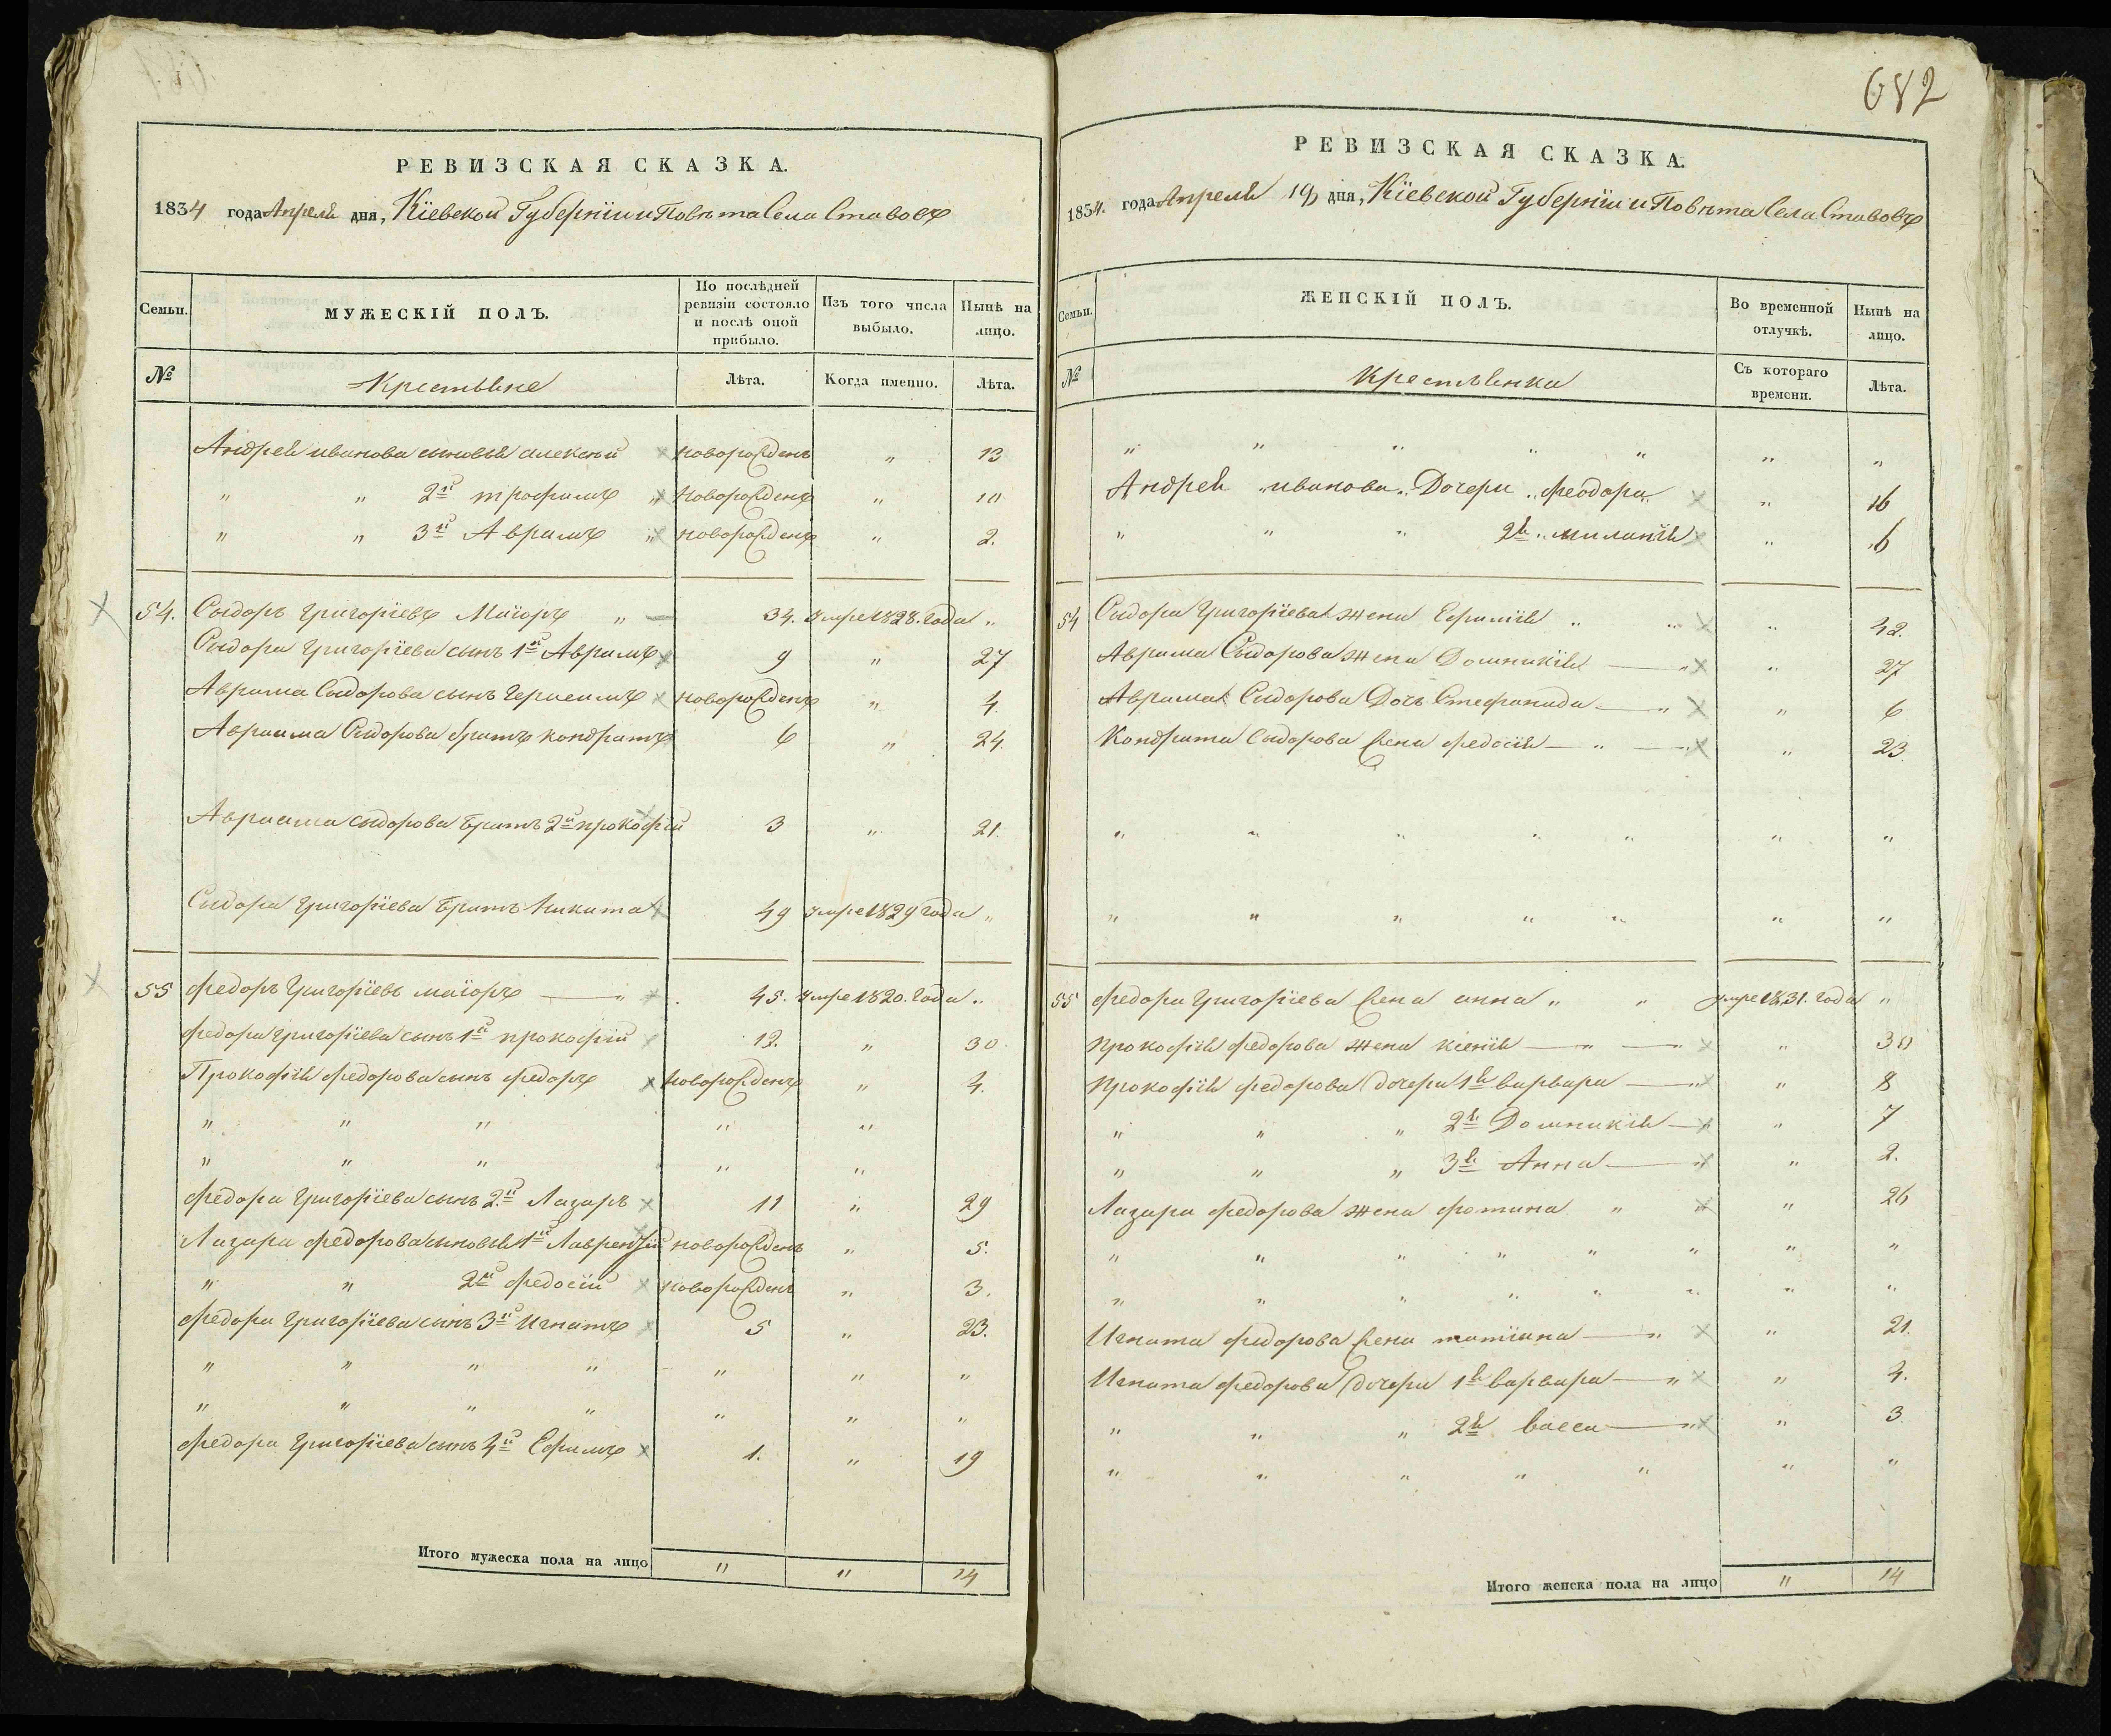 682
РЕВИЗСКАЯ СКАЗКА.
1834 года Апреля дня, Кіевской Губерніи и Повѣта Села Ставовъ
Семьи. МУЖЕСКІЙ ПОЛЪ. По послѣдней ревизіи состояло и послѣ оной прибыло. Изъ того числа выбыло. Нынѣ на лицо.
№ Крестьяне Лѣта. Когда имянно. Лѣта.
Андрея иванова сыновья алексѣй новорожденъ " 13
" " 2й трофимъ " новорожденъ " 10
" " 3й Аврамъ " новорожденъ " 2.
54. Сыдоръ Григорїевъ Маїоръ " 34. умре 1828. года "
Сыдора Григорїева сынъ 1й Аврамъ 9 " 27
Аврама Сыдорова сынъ Герасимъ новорожденъ " 4
Авраама Сыдорова братъ кондратъ 6 " 24.
Авраама сыдорова братъ 2й прокофїй 3 " 21.
Сыдора Григорїева братъ Никита 49 умре 1829 года "
55 федоръ Григорїевъ маїоръ " 45. умре 1820. года "
федора григорїева сынъ 1й прокофїй 12. " 30
Прокофїя федорова сынъ федоръ новорожденъ " 4.
" " " " "
" " " " "
федора Григорїева сынъ 2й Лазаръ 11 " 29
Лазара федорова сыновья 1й Лаврентїй новорожденъ " 5.
" " 2й федосїй новорожденъ " 3.
федора Григорїева сынъ 3й Игнатъ 5 " 23.
" " " " " " "
" " " " " " "
федора Григорїева сынъ 4й Ефимъ 1. " 19
Итого мужеска пола на лицо " " 14
РЕВИЗСКАЯ СКАЗКА.
1834. года Апреля 19 дня, Кїевской Губернїи и Повѣта Села Ставовъ
Семьи. ЖЕНСКІЙ ПОЛЪ. Во временной отлучкѣ. Нынѣ на лицо.
№ Крестьянки Съ котораго времени. Лѣта.
" " " " " " "
Андрея иванова Дочери феодора " 16
" " " 2я миланїя " 6
54 Сыдора Григорїева жена Ефимїя " " " 42.
Аврама Сыдорова жена Домникїя " " 27
Аврама Сыдорова Дочь Стефанида " " 6
Кондрата Сыдорова жена федосїя " " " 23.
" " " " " " "
" " " " " " "
55 федора Григорїева жена анна " " умре 1831. года "
прокофїя федорова жена ксенїя " " " 30
прокофїя федорова дочери 1я варвара " " 8
" " " 2я Домникїя " " 7
" " " 3я Анна " " 2.
Лазара федорова жена фотина " " " 26
" " " " " " " "
" " " " " " " "
Игната федорова жена татїана " " 21.
Игната федорова дочери 1я варвара " " 4.
" " " 2я васса " " 3
" " " " " " "
Итого женска пола на лицо " 14